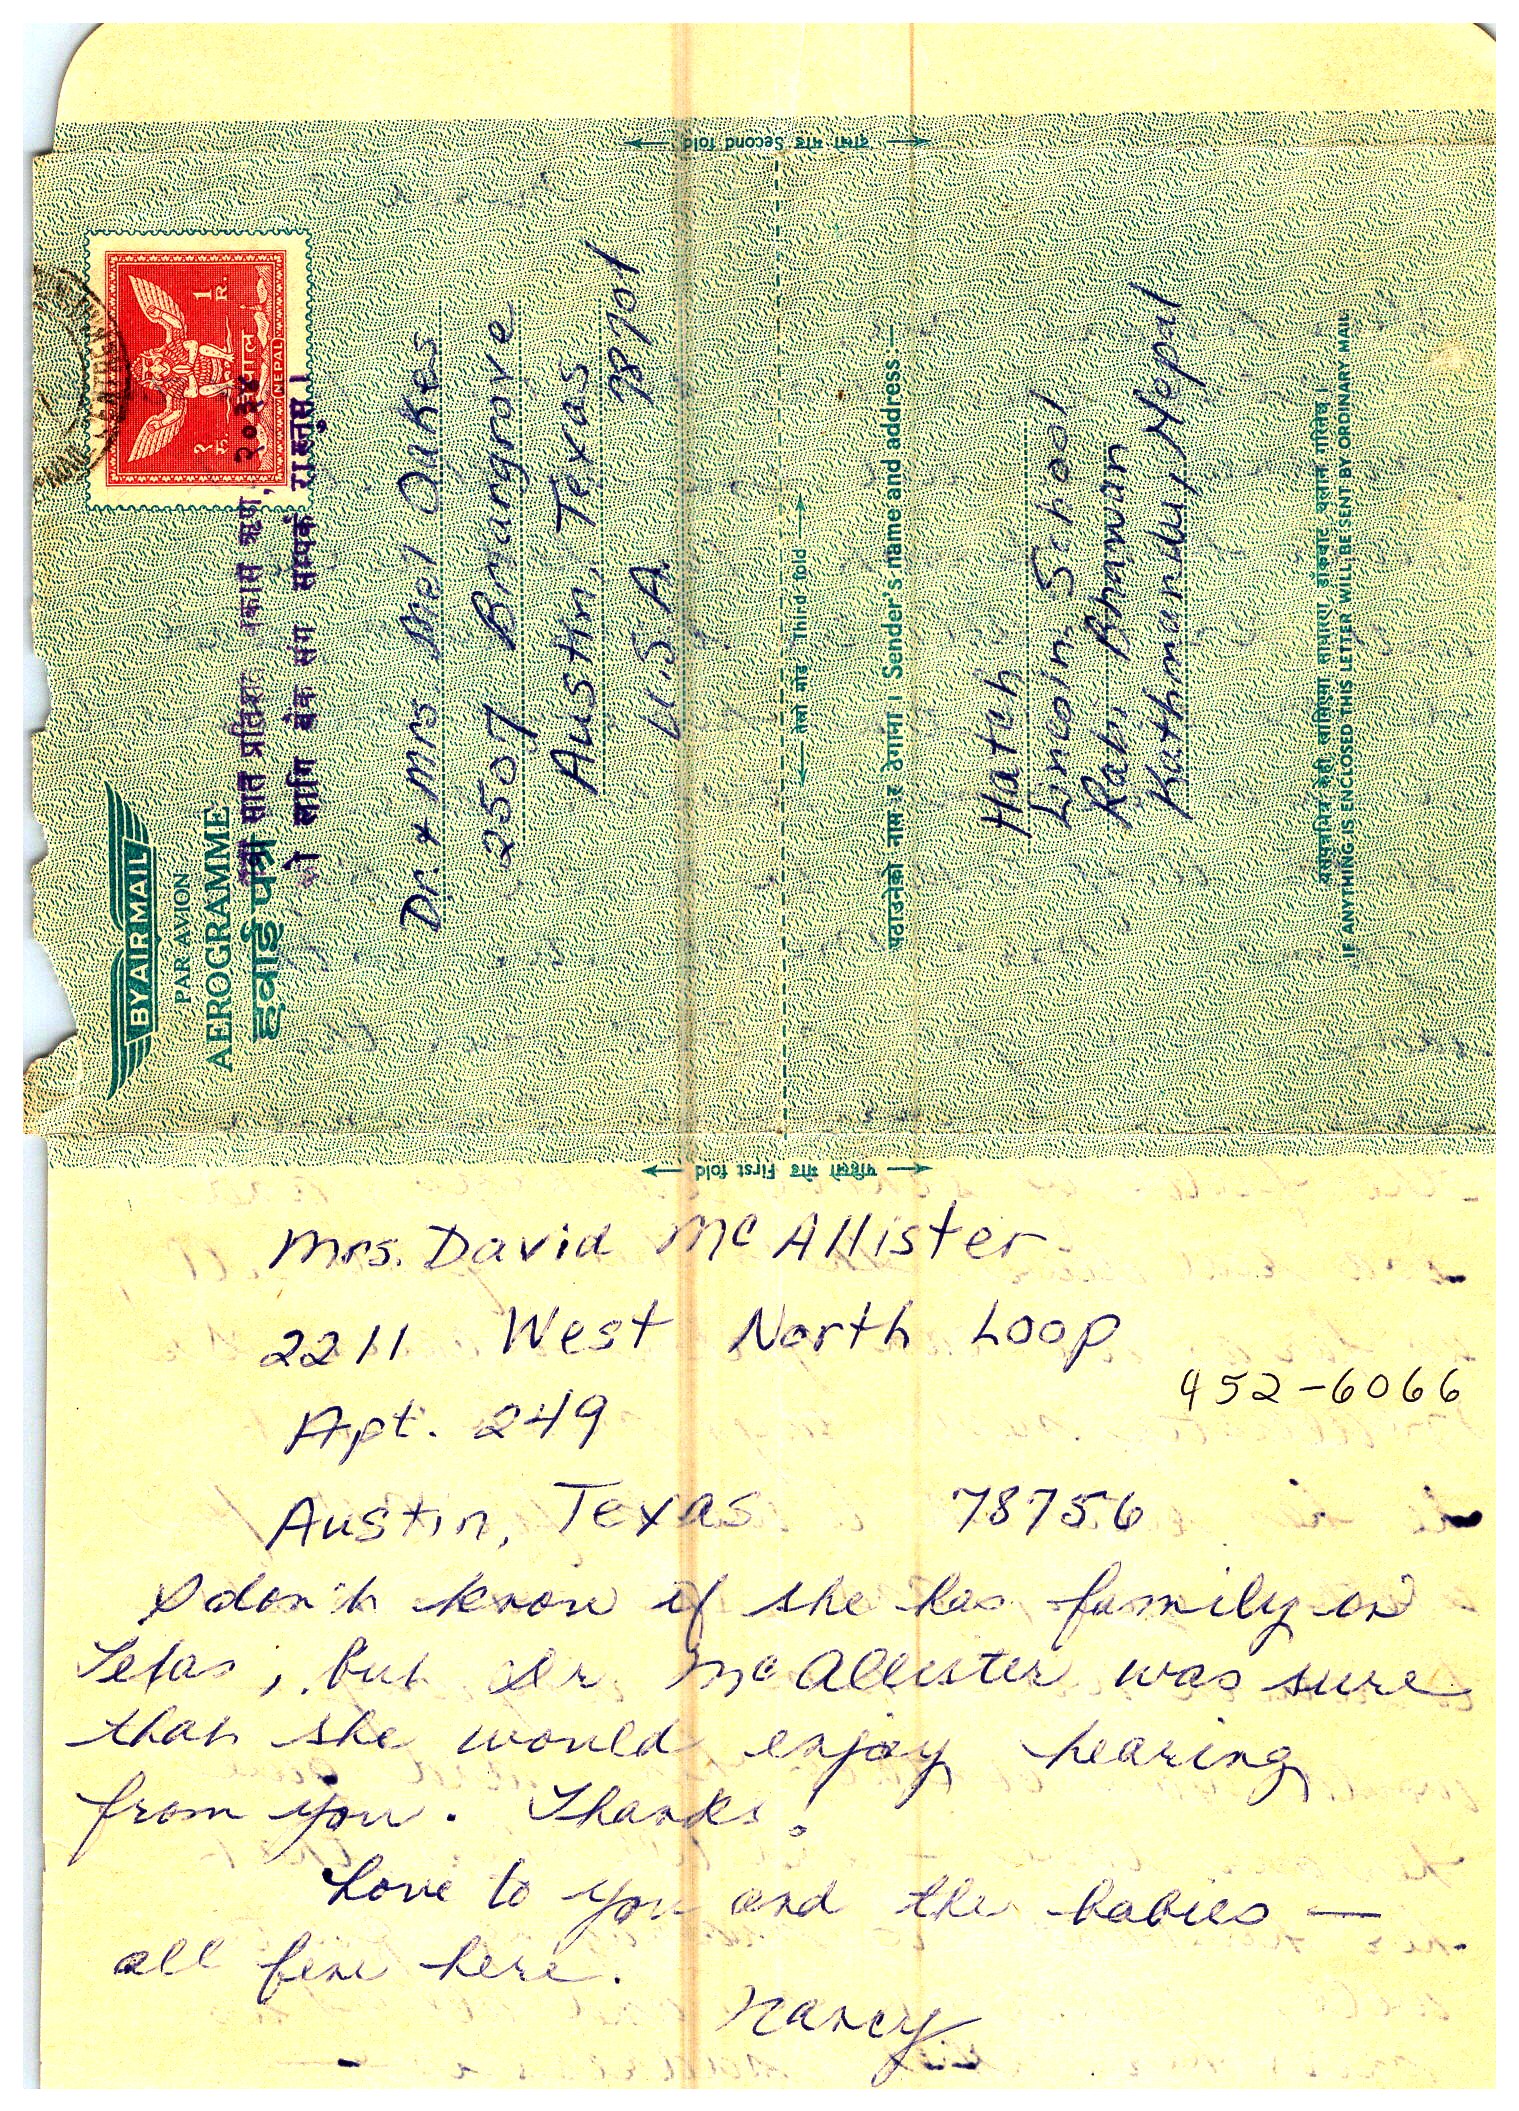 दोश्रो मोड Second fold
BY AIR MAIL
PAR AVION
AEROGRAMME
हवाई पत्र
१
रु.
1
R.
नेपाल
(NEPAL)
सात प्रतिशत विकास ऋण, २०३४
को लागि बैंक संग सम्पर्क राख्नुस ।
Dr. & Mrs Mel Oakes
2507 Bmangrove
Austin, Texas
U.S.A. 78701
तेस्रो मोड Third fold
पठाउनेको नाम र ठेगाना । Sender's name and address
Hatch
Lincoln School
Rabi Bhawan
Kathmandu, Nepal
यसभित्र केही राखिएमा साधारण डाँकबाट चलान गरिनेछ ।
IF ANYTHING IS ENCLOSED THIS LETTER WILL BE SENT BY ORDINARY MAIL
पहिलो मोड First fold
Mrs. David McAllister
2211 West North Loop
452-6066
Apt. 249
Austin, Texas 78756
I don't know if she has family in
Texas, but Dr McAllister was sure
that she would enjoy hearing
from you. Thanks!
Love to you and the babies —
all fine here.
Nancy